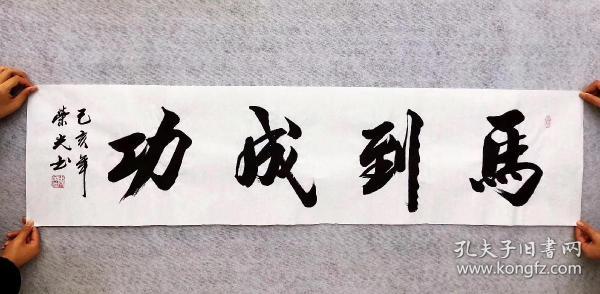 馬到成功
己亥年
榮光书
孔夫子旧書网
www.kongfz.com